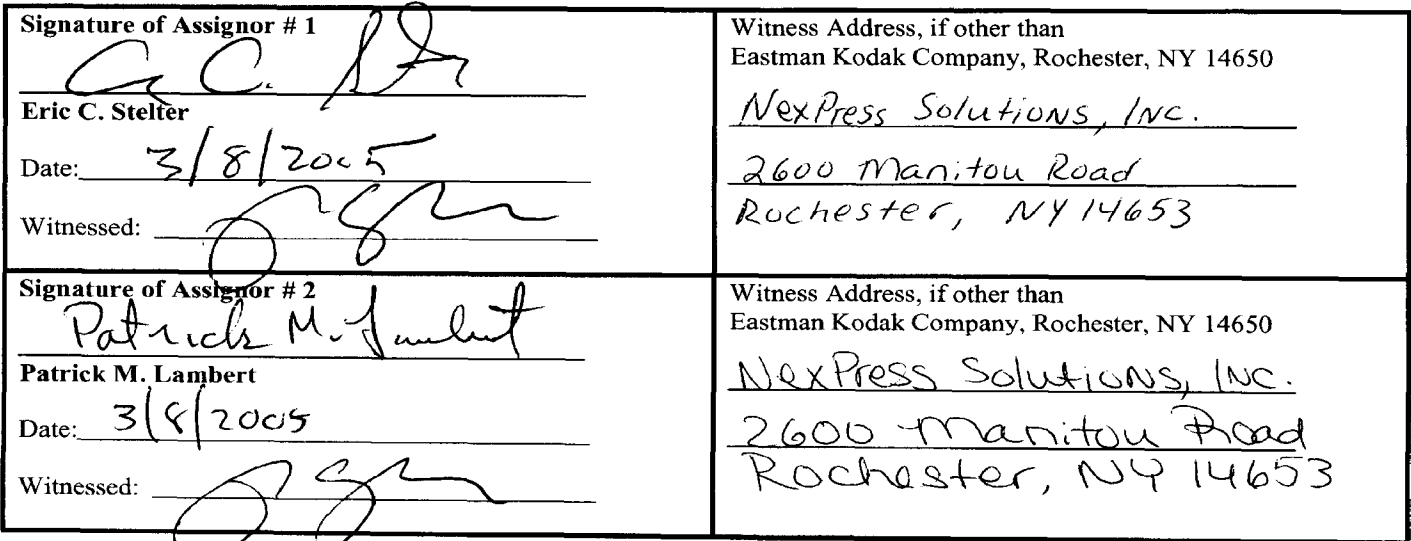 Signature of Assignor # 1
Eric C. Stelter
Date: 3/8/2005
Witnessed:
Witness Address, if other than
Eastman Kodak Company, Rochester, NY 14650
NexPress Solutions, Inc.
2600 Manitou Road
Rochester, NY 14653
Signature of Assignor # 2
Patrick M. Lambert
Patrick M. Lambert
Date: 3/8/2005
Witnessed:
Witness Address, if other than
Eastman Kodak Company, Rochester, NY 14650
NexPress Solutions, Inc.
2600 Manitou Road
Rochester, NY 14653